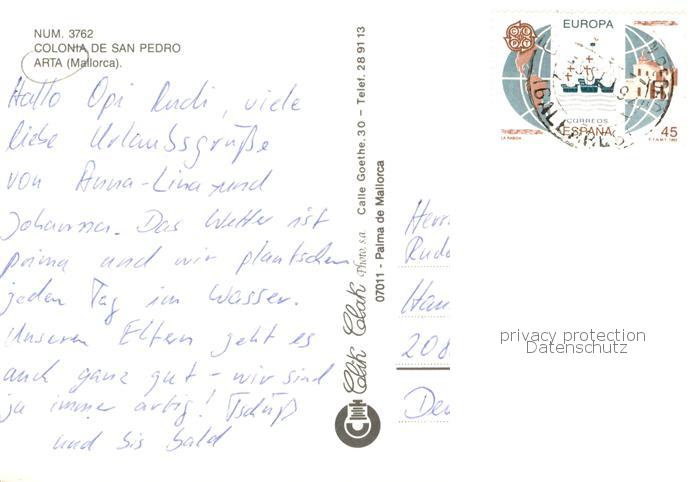 NUM. 3762
COLONIA DE SAN PEDRO
ARTA (Mallorca).
Hallo Opi Rudi, viele
liebe Urlaubsgrüße
von Anna-Lina und
Johanna. Das Wetter ist
prima und wir plantschen
jeden Tag im Wasser.
Unseren Eltern geht es
auch ganz gut - wir sind
ja immer artig! Tschüß
und bis bald
Clik Clak Photo, s.a. Calle Goethe, 30 – Telef. 28 91 13
07011 - Palma de Mallorca
EUROPA
CEPT
CORREOS
ESPAÑA
45
LA RABIDA
F.N.M.T. 1992
BALEARES
Herr
Rudo
Han
208
Deu
privacy protection
Datenschutz